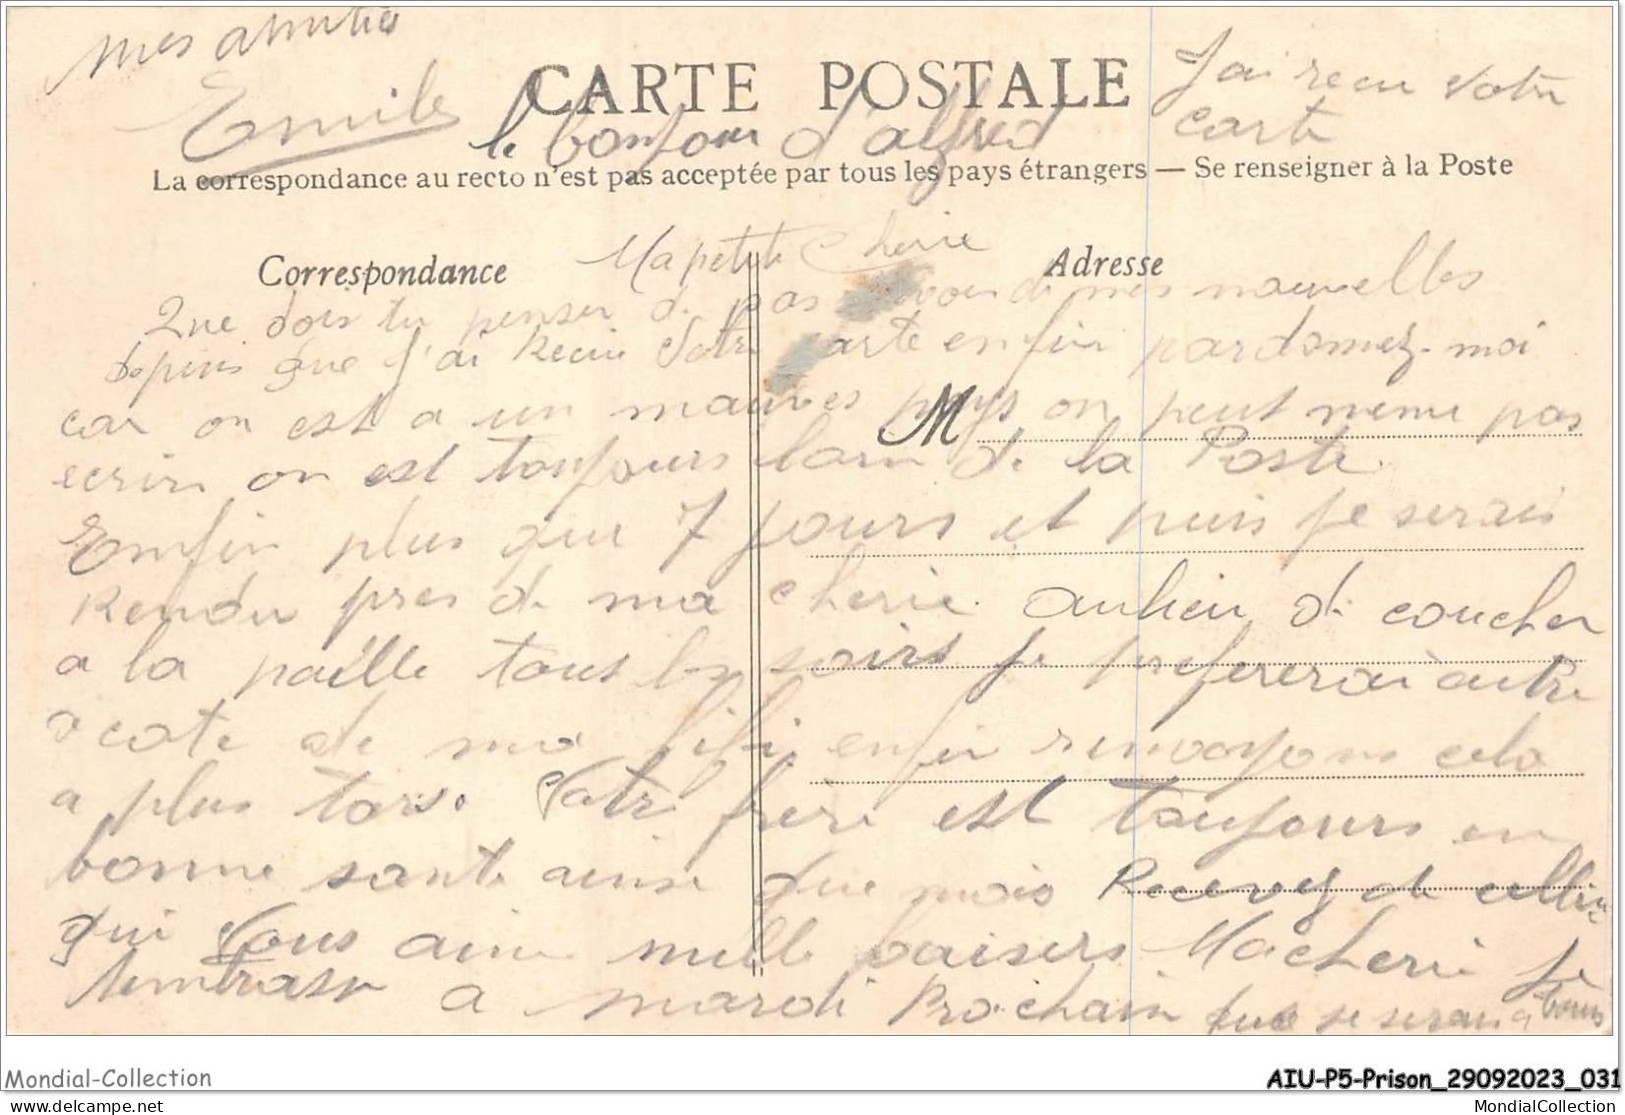 mes amitiés
Emile
CARTE POSTALE
le bonjour d'alfred
J'ai recu votre
carte
La correspondance au recto n'est pas acceptée par tous les pays étrangers — Se renseigner à la Poste
Correspondance
Adresse
Ma petite Cherie
Que dois tu penser de pas avoir de mes nouvelles
depuis que j'ai Recu Votre carte enfin pardonnez-moi
car on est a un mauves pays on peut meme pas
M
ecrire on est toujours loin de la Poste
Enfin plus que 7 jours et puis je serais
Rendu pres de ma cherie. aulieu de coucher
a la paille tous les soirs je prefererai aitre
a cote de ma fifi, enfin renvoyons cela
a plus tars. Votre frere est toujours en
bonne sante ainsi que mois Recevez de celui
qui Vous aime mille baisers Ma cherie Je
t'embrasse a mardi Prochain que je serai a
Mondial-Collection
AIU-P5-Prison_29092023_031
delcampe.net
MondialCollection